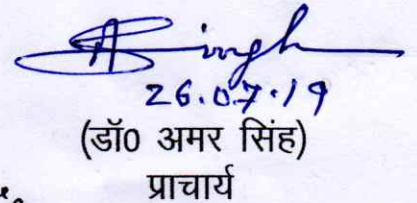 ASingh
26.07.19
(डॉ0 अमर सिंह)
प्राचार्य